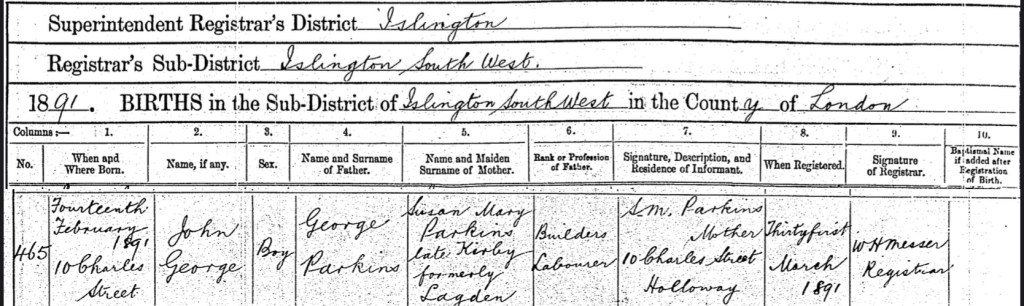 Superintendent Registrar's District Islington
Registrar's Sub-District Islington South West.
1891. BIRTHS in the Sub-District of Islington South West in the County of London
Columns:— 1. 2. 3. 4. 5. 6. 7. 8. 9. 10.
No. When and Where Born. Name, if any. Sex. Name and Surname of Father. Name and Maiden Surname of Mother. Rank or Profession of Father. Signature, Description, and Residence of Informant. When Registered. Signature of Registrar. Baptismal Name if added after Registration of Birth.
465
Fourteenth
February
1891
10 Charles
Street
John
George
Boy
George
Parkins
Susan Mary
Parkins
late Kirby
formerly
Lagden
Builders
Labourer
S.M. Parkins
Mother
10 Charles Street
Holloway
Thirtyfirst
March
1891
W H Messer
Registrar